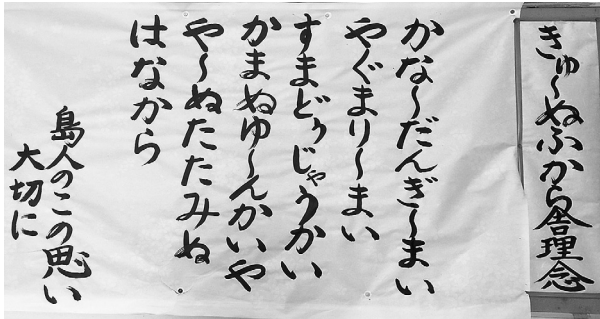 きゅ〜ぬふから舎理念
かな〜だんぎ〜まい
やぐまり〜まい
すまどぅじゃうかい
かまぬゆ〜んかいや
や〜ぬたたみぬ
はなから
島人のこの思い
大切に